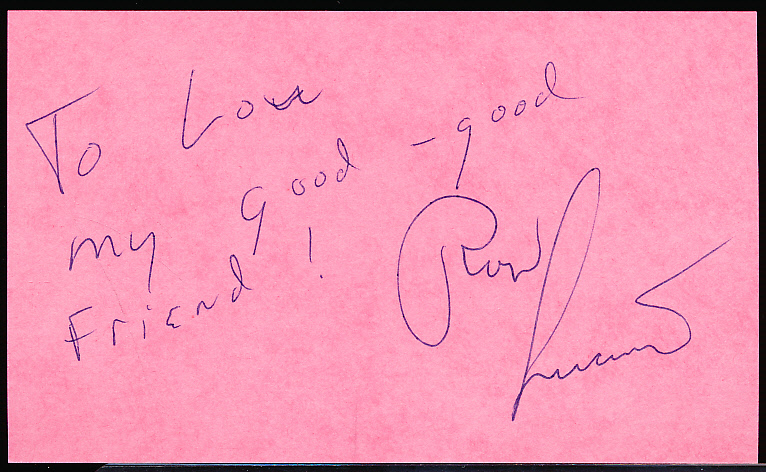 To Lou
my good - good
Friend!
Ron Luciano